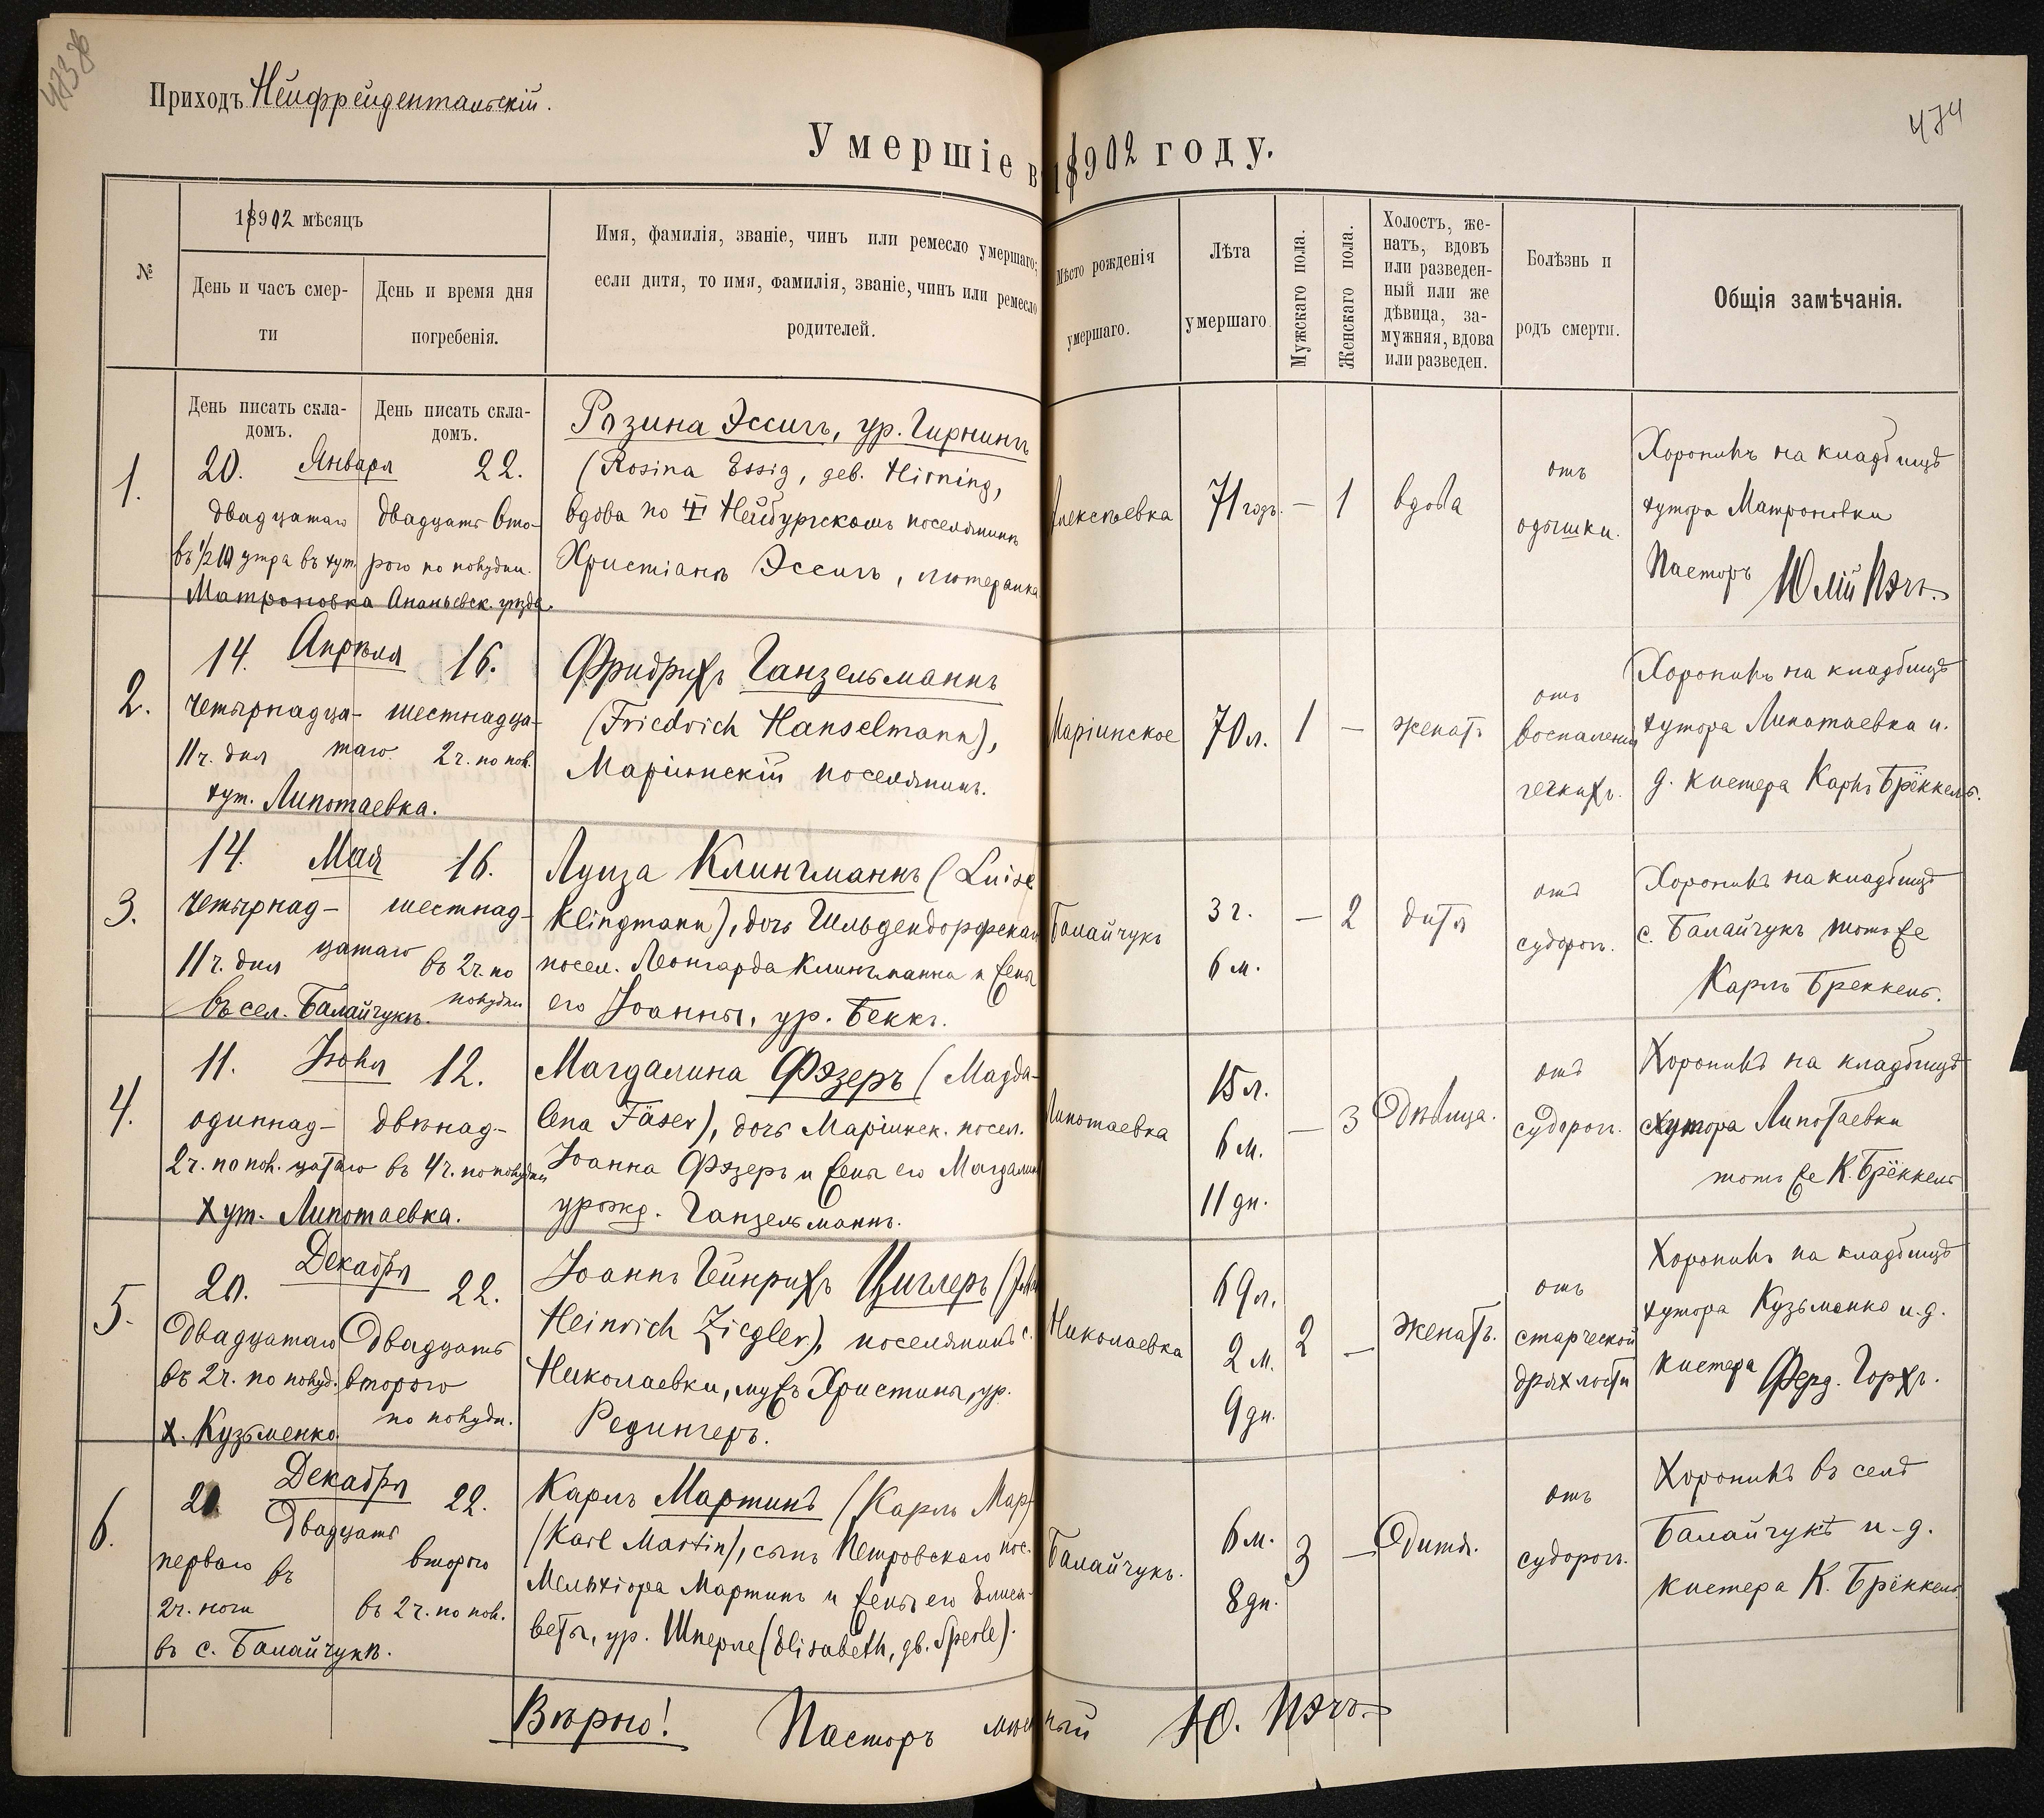 Приходъ Нейфрейдентальскій.
474
Умершіе въ 1902 году.
№
18902 мѣсяцъ
День и часъ смер-
ти
День и время дня
погребенія.
Имя, фамилія, званіе, чинъ или ремесло умершаго;
если дитя, то имя, фамилія, званіе, чинъ или ремесло
родителей.
Мѣсто рожденія
умершаго.
Лѣта
умершаго
Мужскаго пола.
Женскаго пола.
Холостъ, же-
натъ, вдовъ
или разведен-
ный или же
дѣвица, за-
мужняя, вдова
или разведен.
Болѣзнь и
родъ смерти.
Общія замѣчанія.
День писать скла-
домъ.
День писать скла-
домъ.
1.
20. Января 22.
двадцатаго
двадцать вто-
въ ½10 утра въ хут.
рого по полудни.
Матроновка Ананьевск. уѣзда.
Розина Эссигъ, ур. Гирнингъ
(Rosina Essig, geb. Hirning,
вдова по Нейбургскомъ поселянинѣ
Христіанѣ Эссигъ, лютеранка
Алексѣевка
71 годъ.
—
1
вдова
отъ
одышки.
Хоронилъ на кладбищѣ
хутора Матроновки
Пасторъ Юлій Пэчъ.
2.
14. Апрѣля 16.
четырнадца-
шестнадца-
11 ч. дня таго 2 ч. по пол.
хут. Липотаевка.
Фридрихъ Ганзельманнъ
(Friedrich Hanselmann),
Маріинскій поселянинъ.
Маріинское
70 л.
1
—
женатъ
отъ
воспаленія
легкихъ.
Хоронилъ на кладбищѣ
хутора Липотаевка и.
д. кистера Карлъ Брёккель.
3.
14. Мая 16.
четырнад-
шестнад-
цатаго
11 ч. дня въ 2 ч. по
полудни
въ сел. Балайчукъ.
Луиза Клингманнъ (Luise
Klingmann), дочь Гильдендорфскаго
посел. Леонгарда Клингманна и жены
его Іоанны, ур. Беккъ.
Балайчукъ
3 г.
6 м.
—
2
дитя
отъ
судорогъ.
Хоронилъ на кладбищѣ
с. Балайчукъ тотъ же
Карлъ Бреккель.
4.
11. Іюня 12.
одиннад-
двѣнад-
2 ч. по пол. цатаго въ 4 ч. по полудни
хут. Липотаевка.
Магдалина Фэзеръ (Magda-
lena Fäser), дочь Маріинск. посел.
Іоанна Фэзеръ и жены его Магдалины
урожд. Ганзельманнъ.
Липотаевка
15 л.
6 м.
11 дн.
—
3
Дѣвица.
отъ
судорог.
Хоронилъ на кладбищѣ
хутора Липотаевки
тотъ же К. Брёккель
5.
20. Декабря 22.
Двадцатаго
Двадцать
въ 2 ч. по полуд.
второго
по полудн.
х. Кузьменко
Іоаннъ Гейнрихъ Циглеръ (Johann
Heinrich Ziegler), поселянинъ с.
Николаевки, мужъ Христины, ур.
Редингеръ.
Николаевка
69 л.
2 м.
9 дн.
2
—
женатъ.
отъ
старческой
дряхлости
Хоронилъ на кладбищѣ
хутора Кузьменко и.д.
кистера Ферд. Горхъ.
6.
21 Декабря 22.
Двадцать
перваго въ
второго
2 ч. ночи
въ 2 ч. по пол.
въ с. Балайчукъ.
Карлъ Мартинъ (Карлъ Март
(Karl Martin), сынъ Петровскаго пос.
Мельхіора Мартинъ и жены его Елиса-
веты, ур. Шперле (Elisabeth, gb. Sperle).
Балайчукъ.
6 м.
8 дн.
3
—
Дитя.
отъ
судорогъ.
Хоронилъ въ селѣ
Балайчукѣ и.д.
кистера К. Брёккель
Вѣрно! Пасторъ Ю. Пэчъ